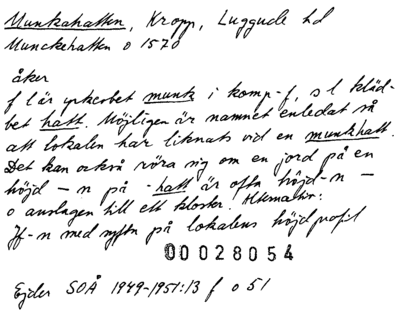 Munkahatten, Kropp, Luggude hd
Munckehatten o 1570
åker
f l är yrkesbet munk i komp-f, s l kläd-
bet hatt. Möjligen är namnet enledat så
att lokalen har liknats vid en munkhatt.
Det kan också röra sig om en jord på en
höjd – n på -hatt är ofta höjd-n –
o anslagen till ett kloster. Alternativ:
Jf-n med syftn på lokalens höjdprofil
00028054
Ejder SOÅ 1949-1951:13 f o 51